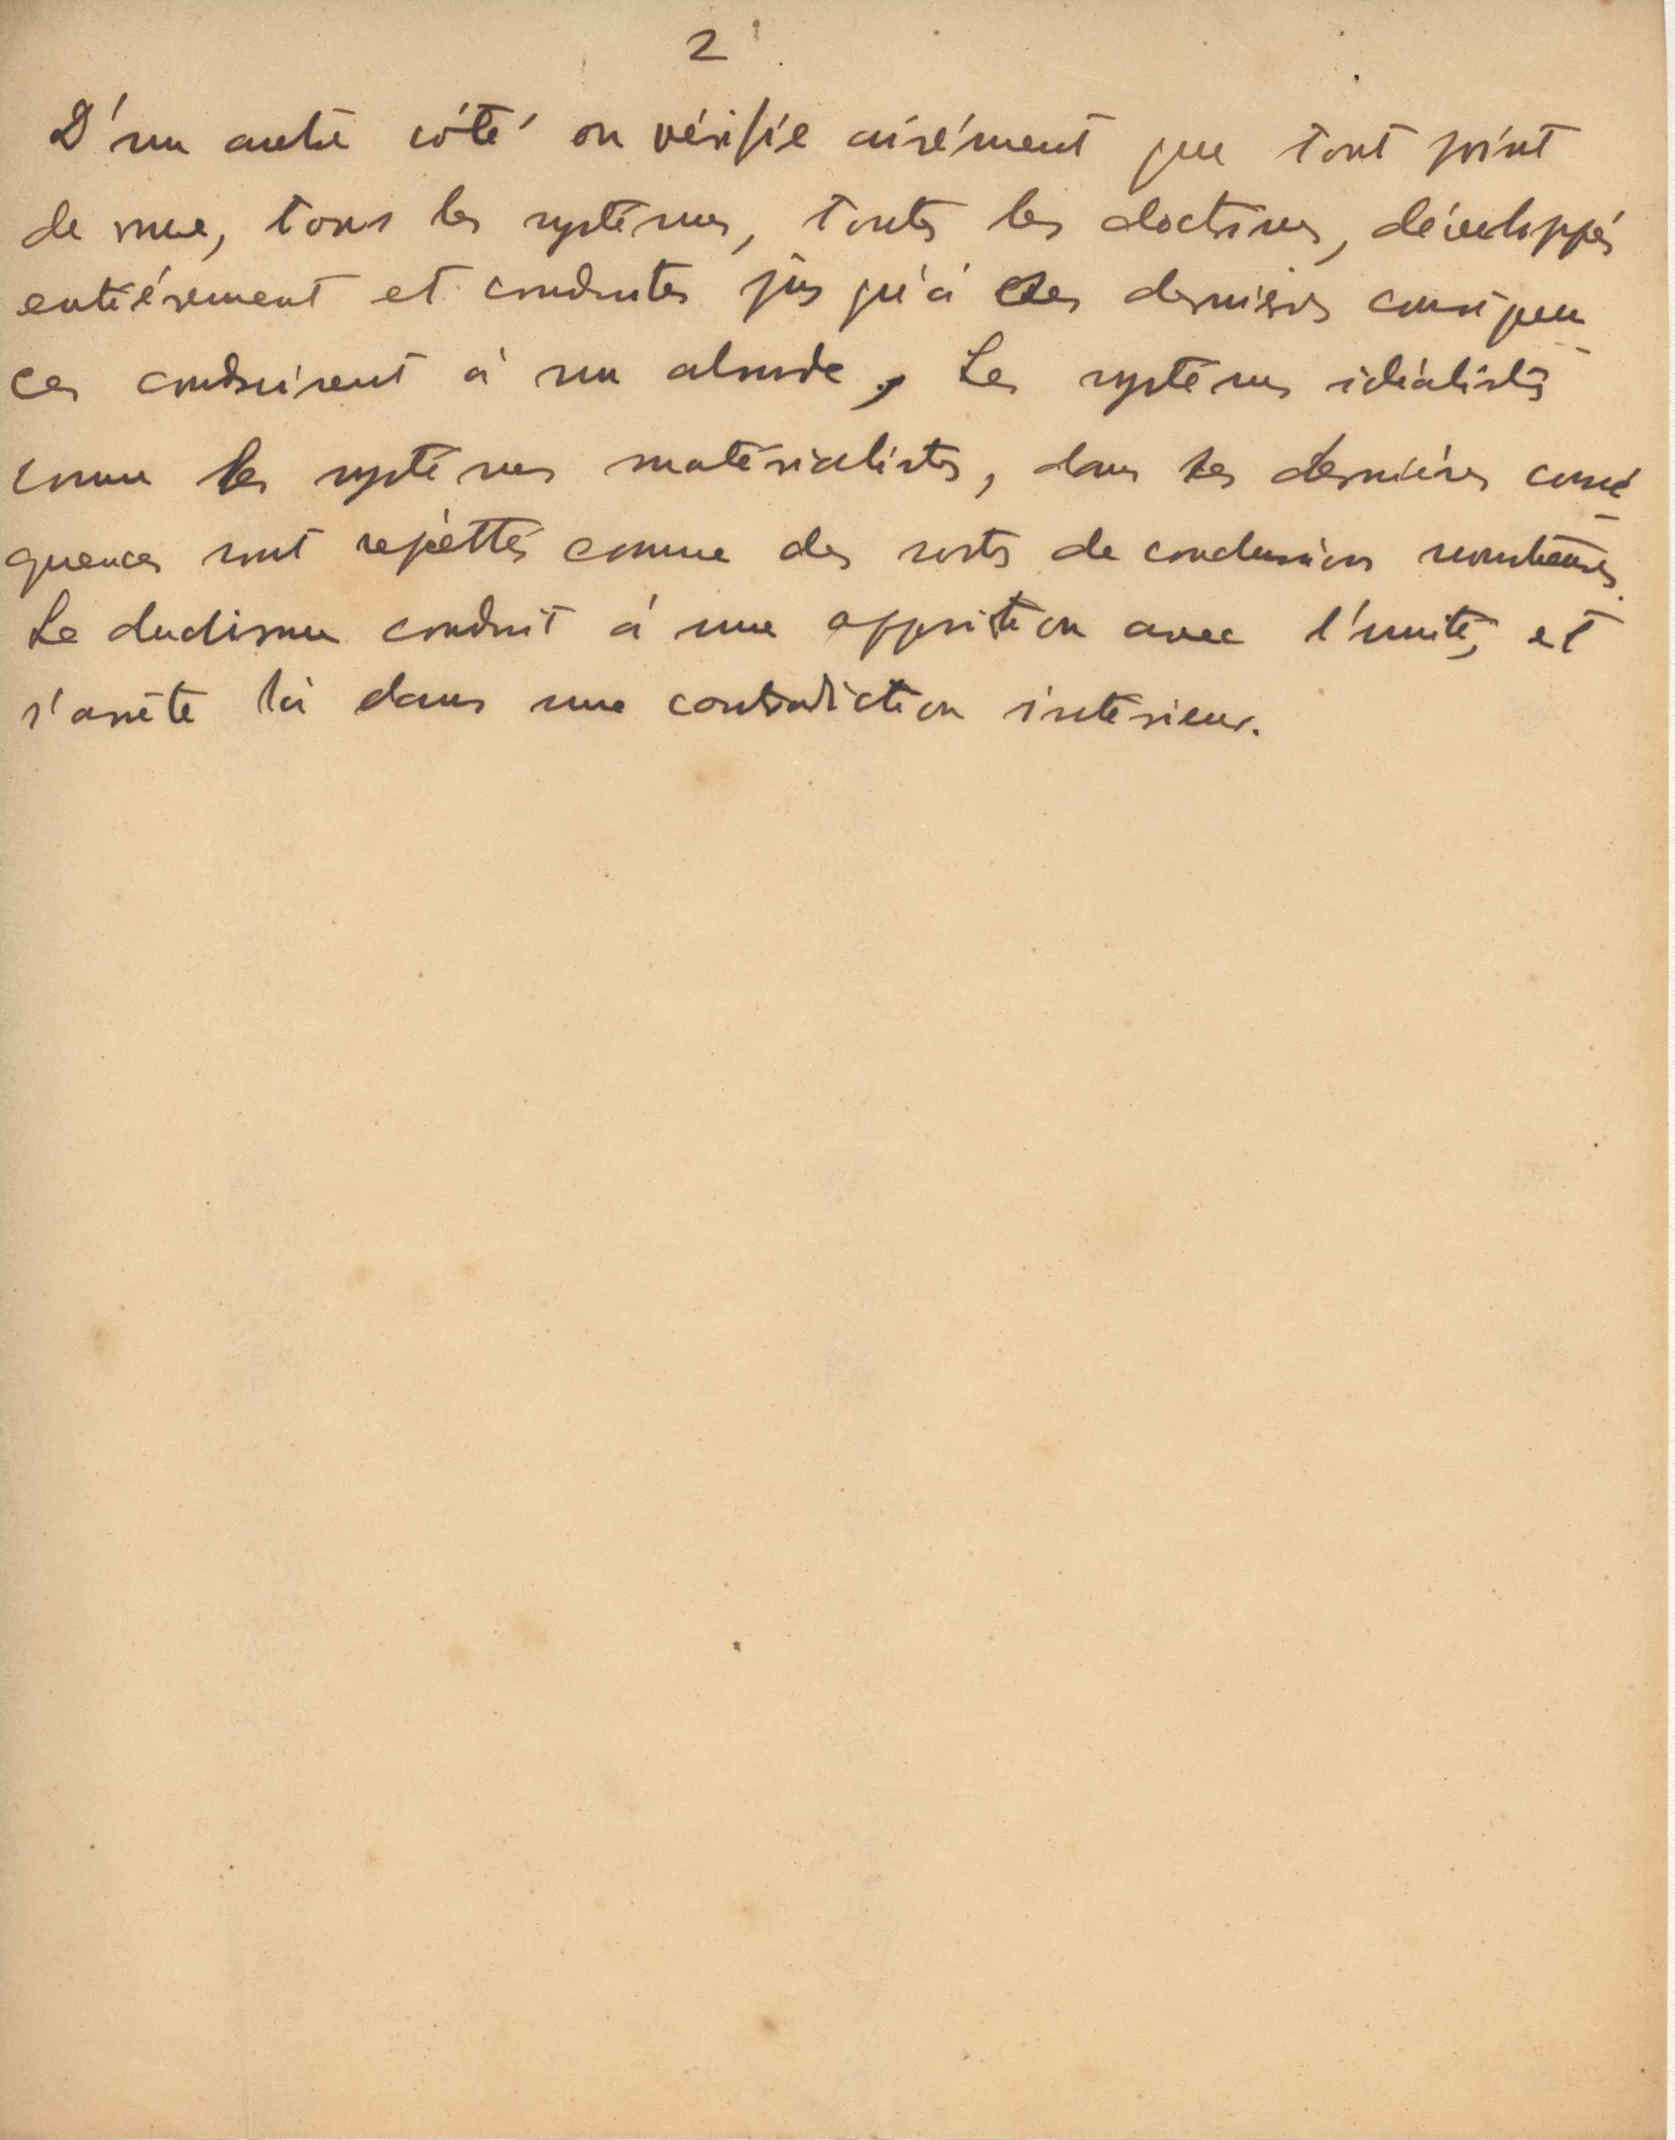 2
D'un autre côté on vérifie aisément que tout point
de vue, tous les systèmes, toutes les doctrines, développés
entièrement et conduites jus qu'à ces dernières conséquen
ces conduisent à un absurde. Les systèmes idéalistes
comme les systèmes matérialistes, dans les dernières consé
quences sont rejettés comme des sortes de conclusions
Le dualisme conduit à une opposition avec l'unité, et
s'arrête là dans une contradiction intérieur.